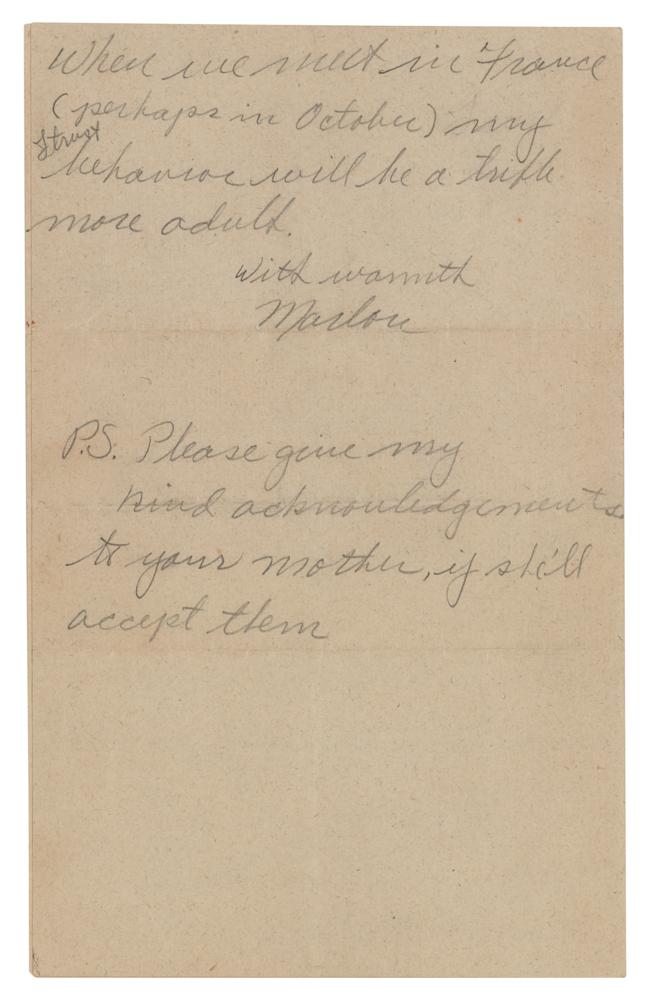 When we meet in France
(perhaps in October) my
I trust
behavior will be a trifle
more adult.
With warmth
Marlon
P.S. Please give my
kind acknowledgements
to your mother, if she'll
accept them